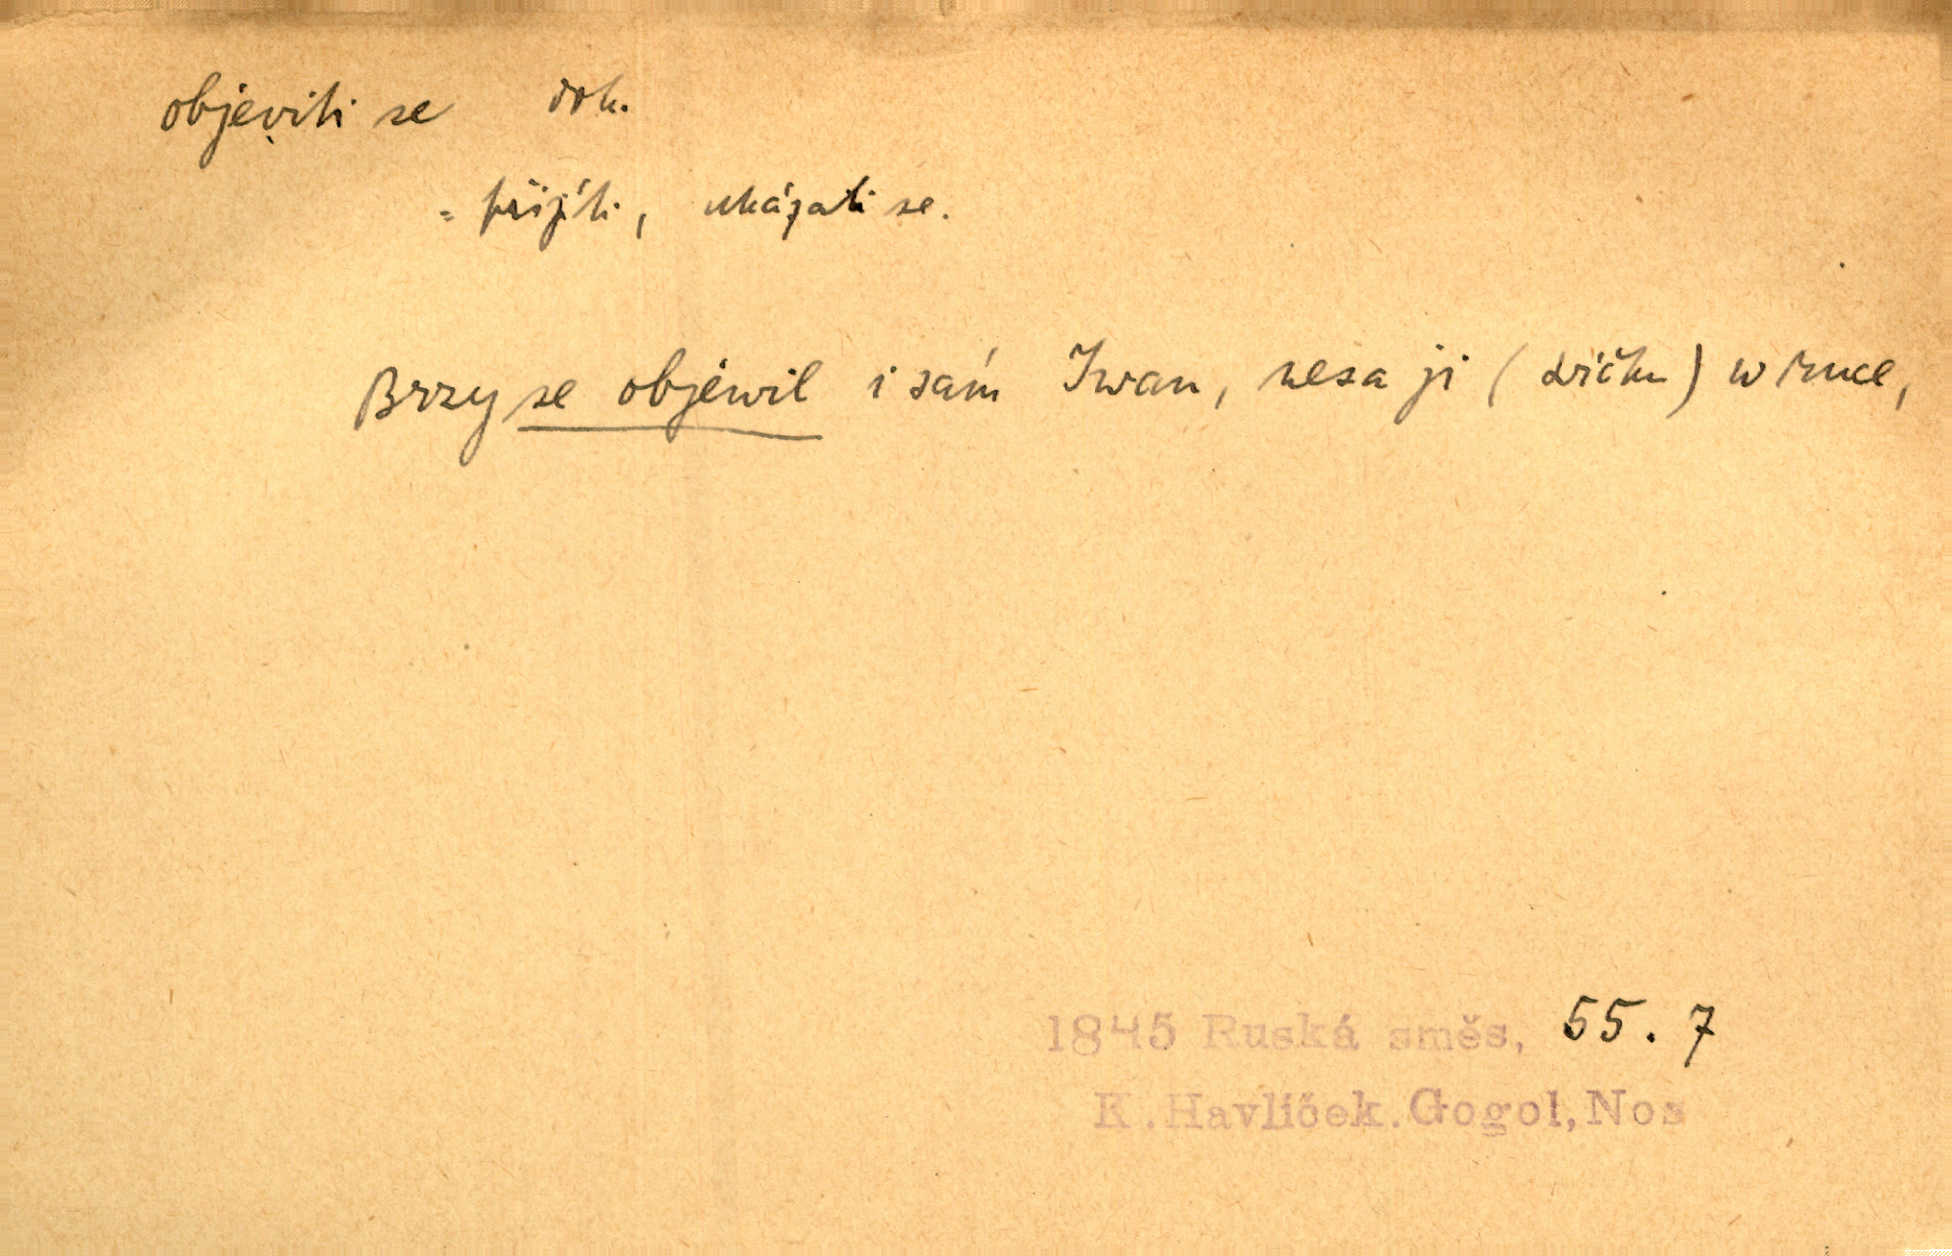 objeviti se dok.
= přijíti, ukázati se.
Brzy se objewil i sám Iwan, nesa ji (swíčku) w ruce,
1845 Ruská směs, 55. 7
K. Havlíček. Gogol, Nos